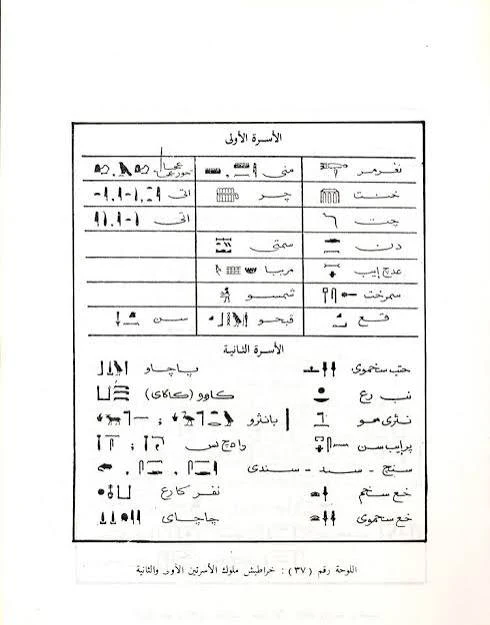 الأسرة الأولى
نعرمر منى عحا حور عحا
خنت چر اتى
چت اتى
دن سمتى
عدج إيب مربيا
سمرخت شمسو
قع قبحو سن
الأسرة الثانية
حتب سخموى پاچاو
نب رع كاوو (كاكاى)
نثرى مو بانثرو
پرايب سن واچ نس
سنچ - سند - سندى
خع سخم نفر كارع
خع سخموى چاچاى
اللوحة رقم (٣٧) : خراطيش ملوك الأسرتين الأولى والثانية